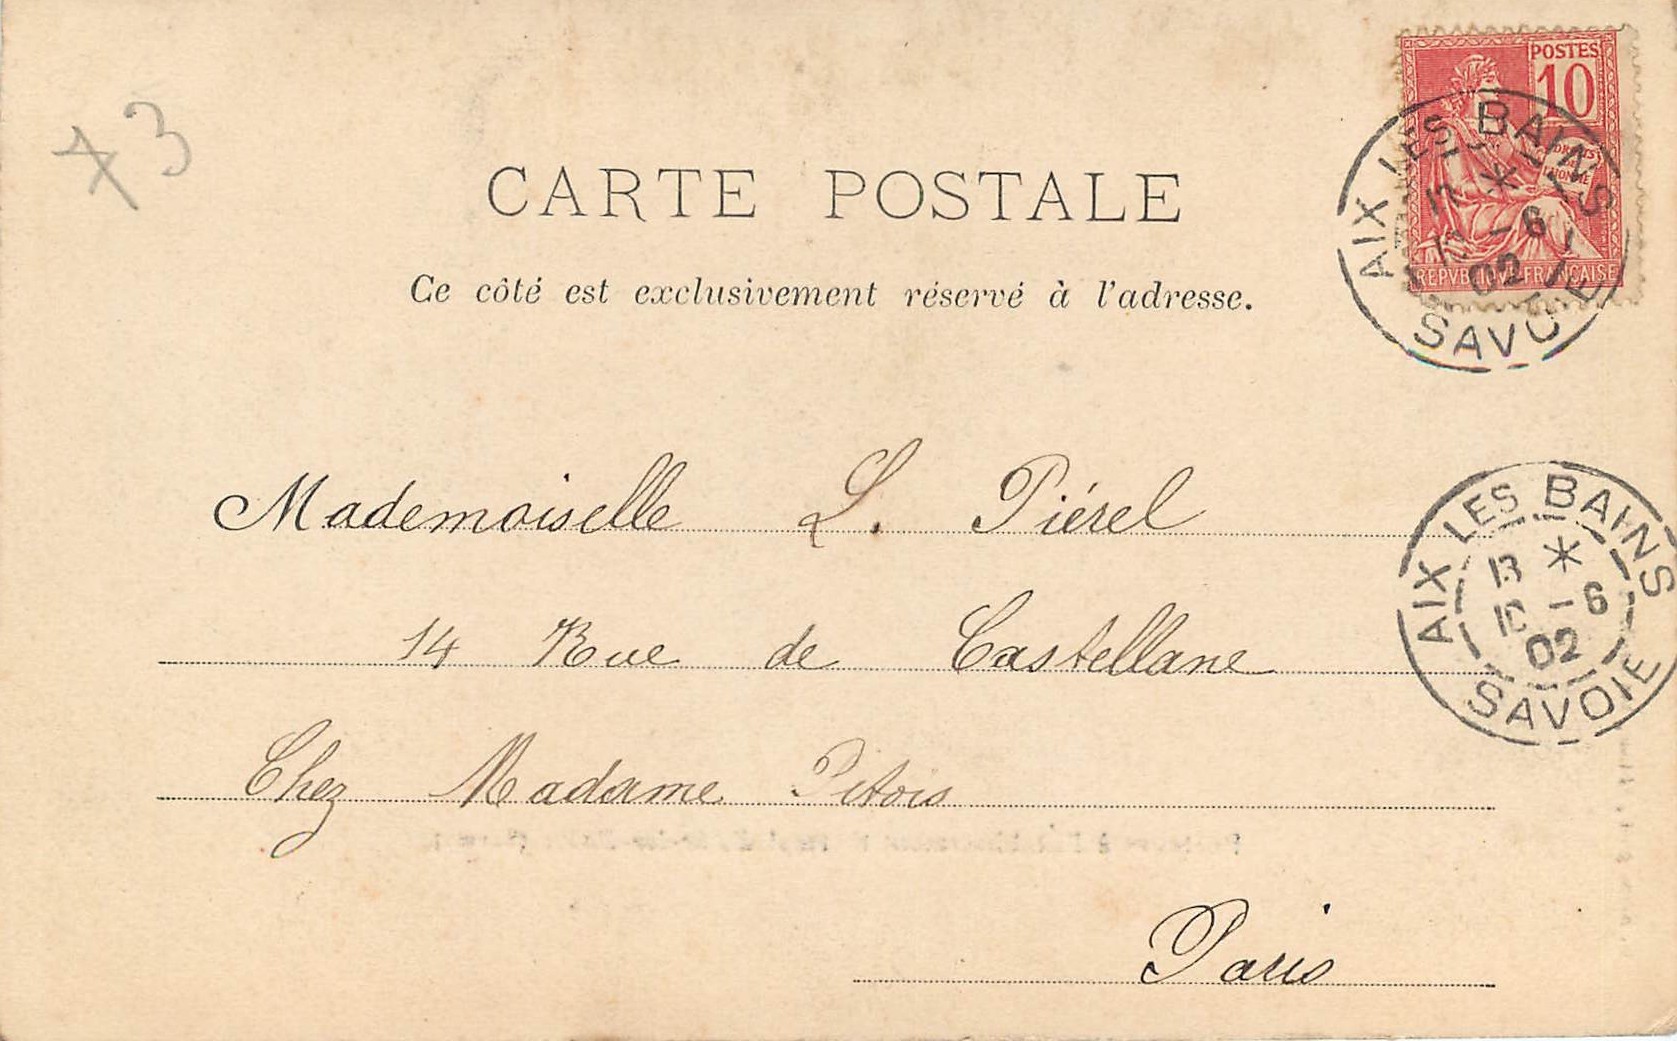 73
CARTE POSTALE
Ce côté est exclusivement réservé à l'adresse.
POSTES
10
DROITS DE L'HOMME
REPVBLIQVE FRANÇAISE
AIX LES BAINS
-6
02
SAVOIE
Mademoiselle L. Piérel
14 Rue de Castellane
Chez Madame Pitois
Paris
AIX LES BAINS
13
10 -6
02
SAVOIE